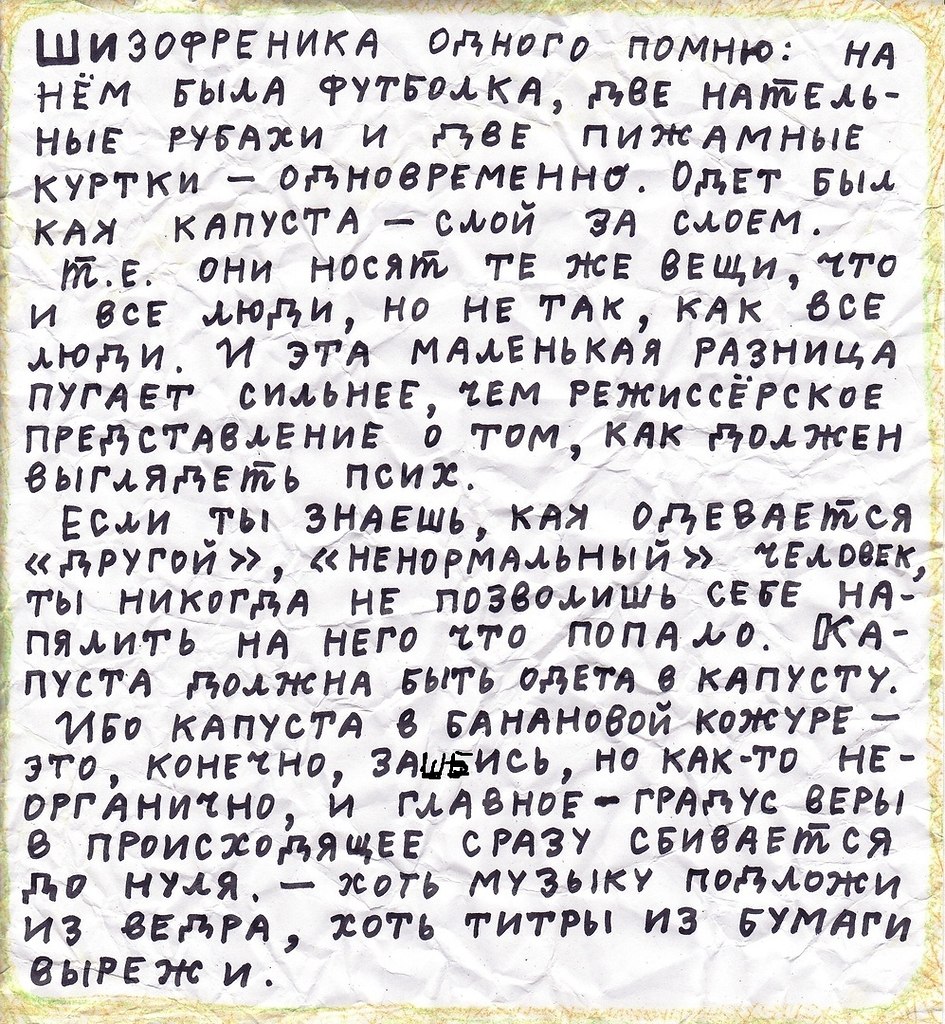 Шизофреника одного помню: на
нём была футболка, две натель-
ные рубахи и две пижамные
куртки — одновременно. Одет был
как капуста — слой за слоем.
Т.е. они носят те же вещи, что
и все люди, но не так, как все
люди. И эта маленькая разница
пугает сильнее, чем режиссёрское
представление о том, как должен
выглядеть псих.
Если ты знаешь, как одевается
«другой», «ненормальный» человек,
ты никогда не позволишь себе на-
пялить на него что попало. Ка-
пуста должна быть одета в капусту.
Ибо капуста в банановой кожуре —
это, конечно, зашбись, но как-то не-
органично, и главное - градус веры
в происходящее сразу сбивается
до нуля. — хоть музыку подложи
из ведра, хоть титры из бумаги
вырежи.